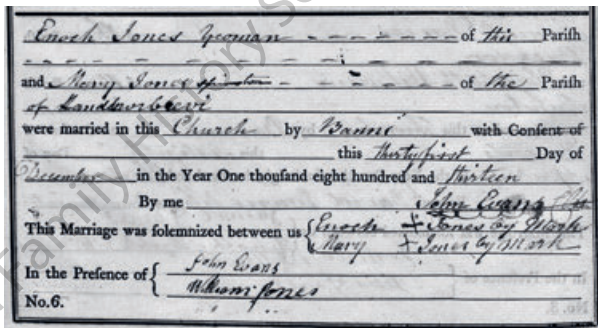 Enoch Jones Yeoman of this Parish
and Mary Jones Spinster of the Parish
of Llanddewibrevi
were married in this Church by Banns with Consent of
this thirty first Day of
December in the Year One thousand eight hundred and thirteen
By me John Evans
This Marriage was solemnized between us { Enoch + Jones by Mark
Mary + Jones by Mark
In the Presence of { John Evans
William Jones
No. 6.
Family History